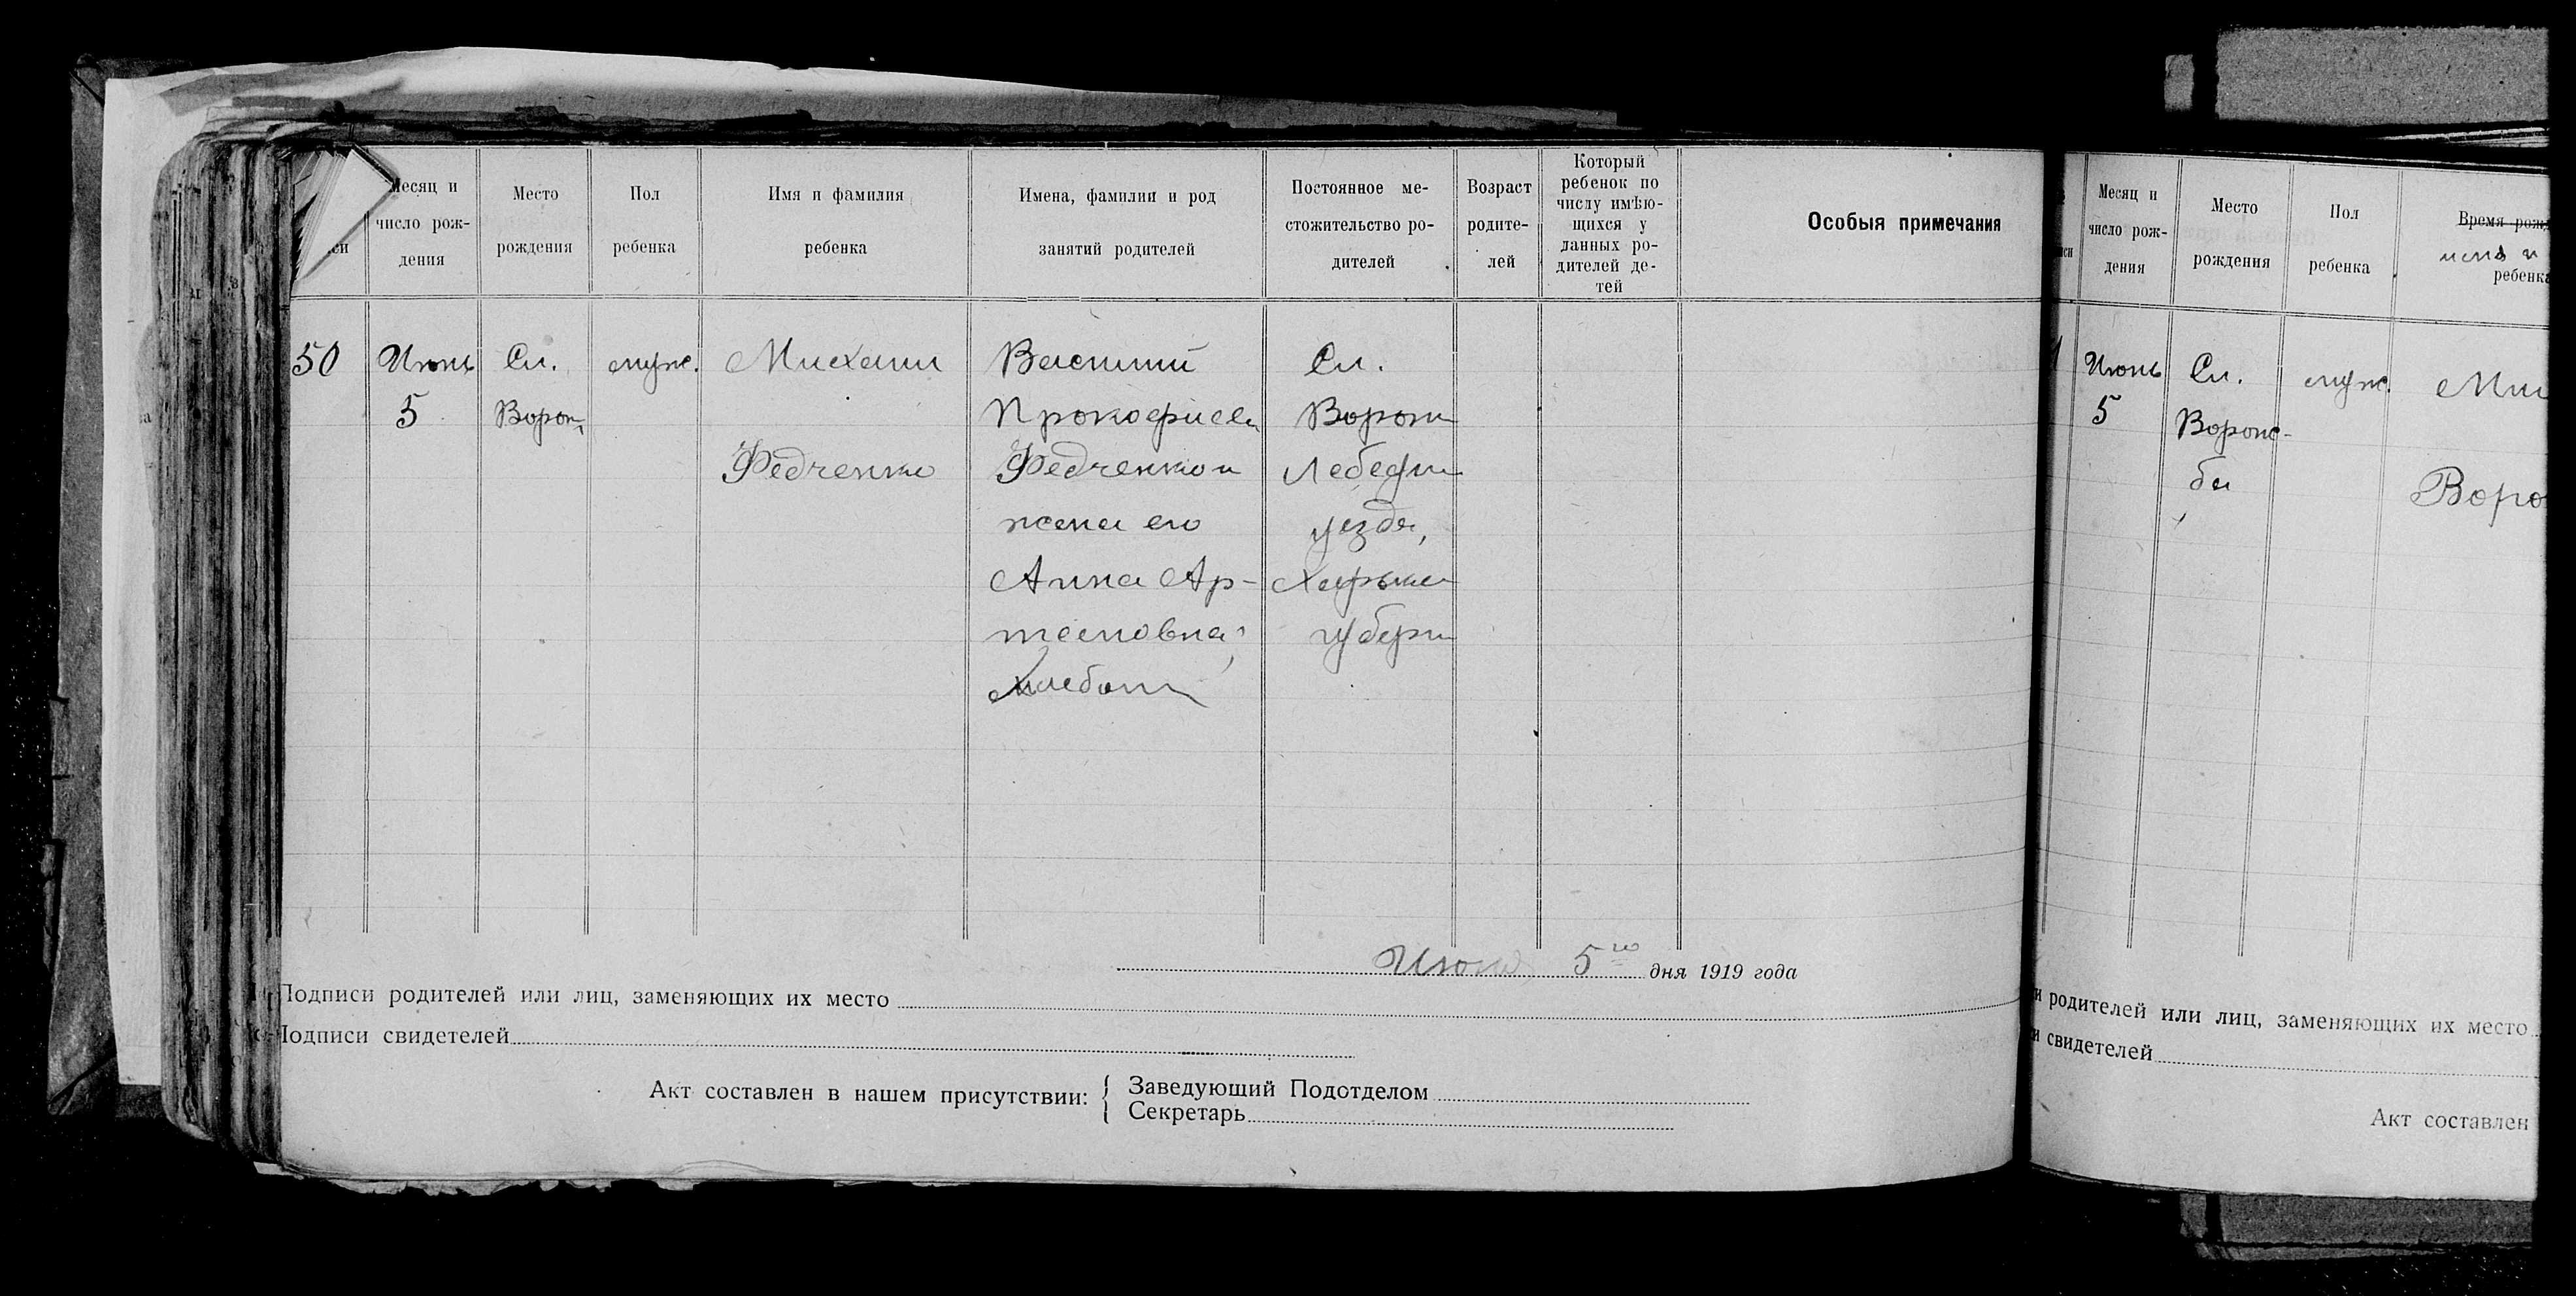 Месяц и число рождения
Место рождения
Пол ребенка
Имя и фамилия ребенка
Имена, фамилии и род занятий родителей
Постоянное местожительство родителей
Возраст родителей
Который ребенок по числу имѣющихся у данных родителей детей
Особыя примечания
50
Июнь
5
Сл.
Ворож
муж.
Михаил
Федченко
Василий
Прокофиев
Федченко и
жена его
Анна Ар-
темовна,
Сл.
Ворож
Лебедин
уезда,
Харьков
губерн
Июня 5го дня 1919 года
Подписи родителей или лиц, заменяющих их место
Подписи свидетелей
Акт составлен в нашем присутствии:
Заведующий Подотделом
Секретарь
Месяц и число рождения
Место рождения
Пол ребенка
Время рожд
имя и
ребенка
Июнь
5
Сл.
муж.
Ми
Воро
и родителей или лиц, заменяющих их место
и свидетелей
Акт составлен